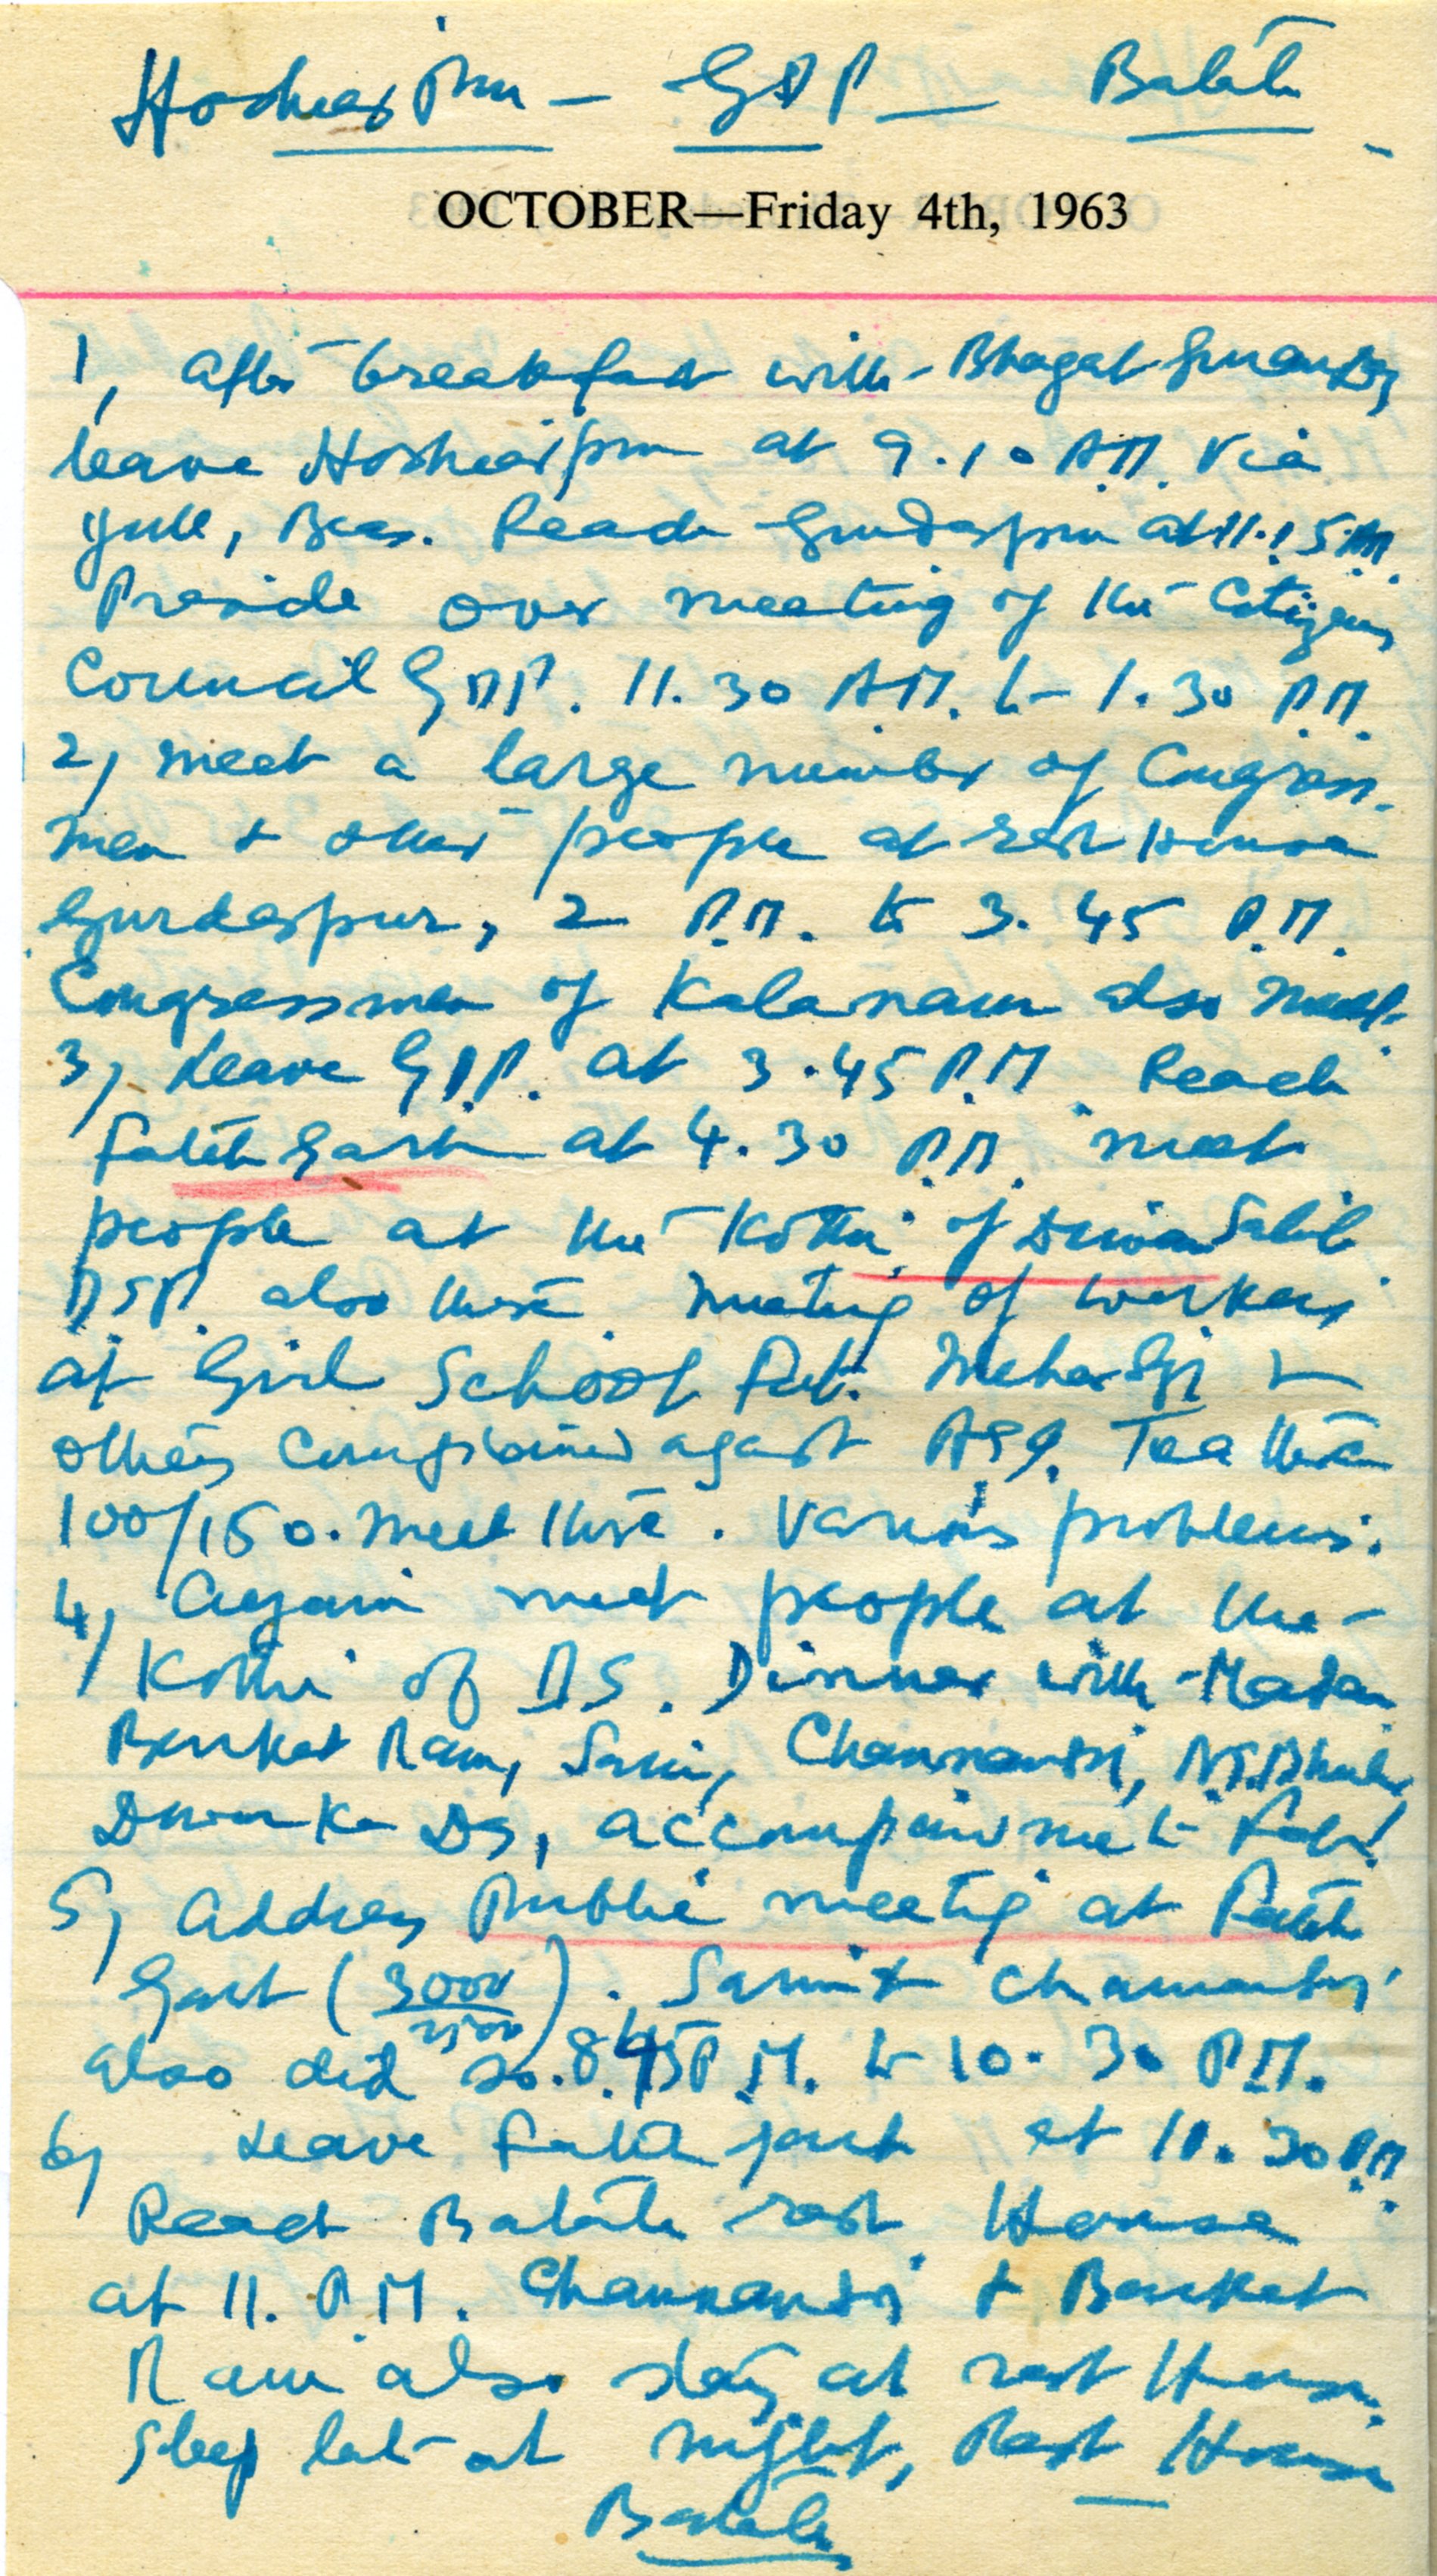 Hoshiarpur — GDP — Batala
OCTOBER—Friday 4th, 1963
1, After breakfast with Bhagat
leave Hoshiarpur at 9.10 A.M. via
Beas. Reach Gurdaspur at 11.15 AM.
Preside over meeting of the Citizens
Council GDP. 11.30 A.M. to 1.30 P.M.
2, Meet a large number of Congress-
men & other people at rest House
Gurdaspur, 2 P.M. to 3.45 P.M.
Congressmen of Kalanaur also meet.
3, Leave GDP. at 3.45 P.M. Reach
Fateh Garh at 4.30 P.M. meet
people at the Kothi of Dewan Sahib
DSP. also there. Meeting of workers
at Girl School Meharji &
others against Tea there
100/150. meet there. Various problems.
4, Again meet people at the
Kothi of D.S. Dinner with Madan
Barket Ram, Saini, Channandji,
Dwarka Ds, me to
5, Address Public meeting at Fateh
Garh (3000/2500). Saini & Channandji
also did so. 8.45 P.M. to 10.30 P.M.
6, Leave Fateh garh at 10.30 P.M.
Reach Batala rest House
at 11. P.M. Channandji & Barket
Ram also stay at rest House.
Sleep late at night, Rest House
Batala